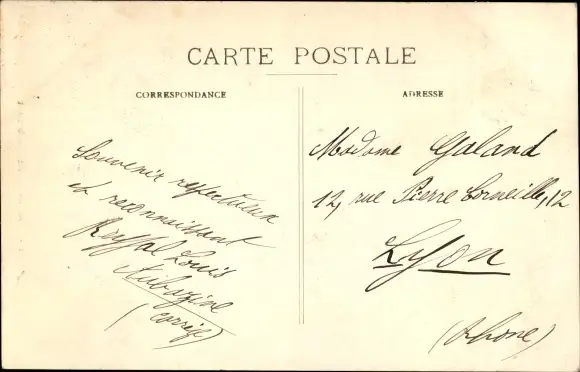 CARTE POSTALE
CORRESPONDANCE
Souvenir respectueux
et reconnaissant
Louis
Aubazine
(Corrèze)
ADRESSE
Madame Galand
12, rue Pierre Corneille, 12
Lyon
(Rhône)